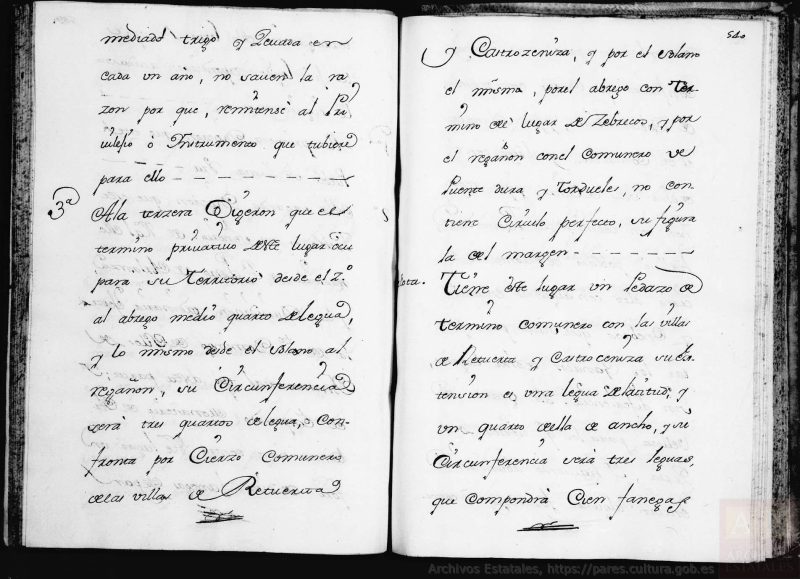 mediado trigo y Zevada en
cada un año, no saven la ra
zon por que, remitense al Pri
vilejio ò Instrumento que tubiere
para ello
3ª
A la terzera Digeron que el
termino privativo de este lugar ocu
para su Territorio desde el Zº
al abrego medio quarto de legua,
y lo mismo desde el solano al
regañon, su Circunferencia
será tres quartos de legua, con-
fronta por Cierzo Comunero
de las villas de Retuerta
540
y Castrozeniza, y por el solano
el misma, por el abrego con Ter
mino del lugar de Zebrecos, y por
el regañon con el Comunero de
Puente dura y Tordueles, no con
tiene Circulo perfecto, su figura
la del margen
Nota.
Tiene este lugar un Pedazo de
Termino comunero con las villas
de Retuerta y Castroceniza su ex
tension es una legua de latitud, y
un quarto de ella de ancho, y su
Circunferencia será tres leguas,
que compondrà Cien fanegas
Archivos Estatales, https://pares.cultura.gob.es
ARCHIVOS
ESTATALES